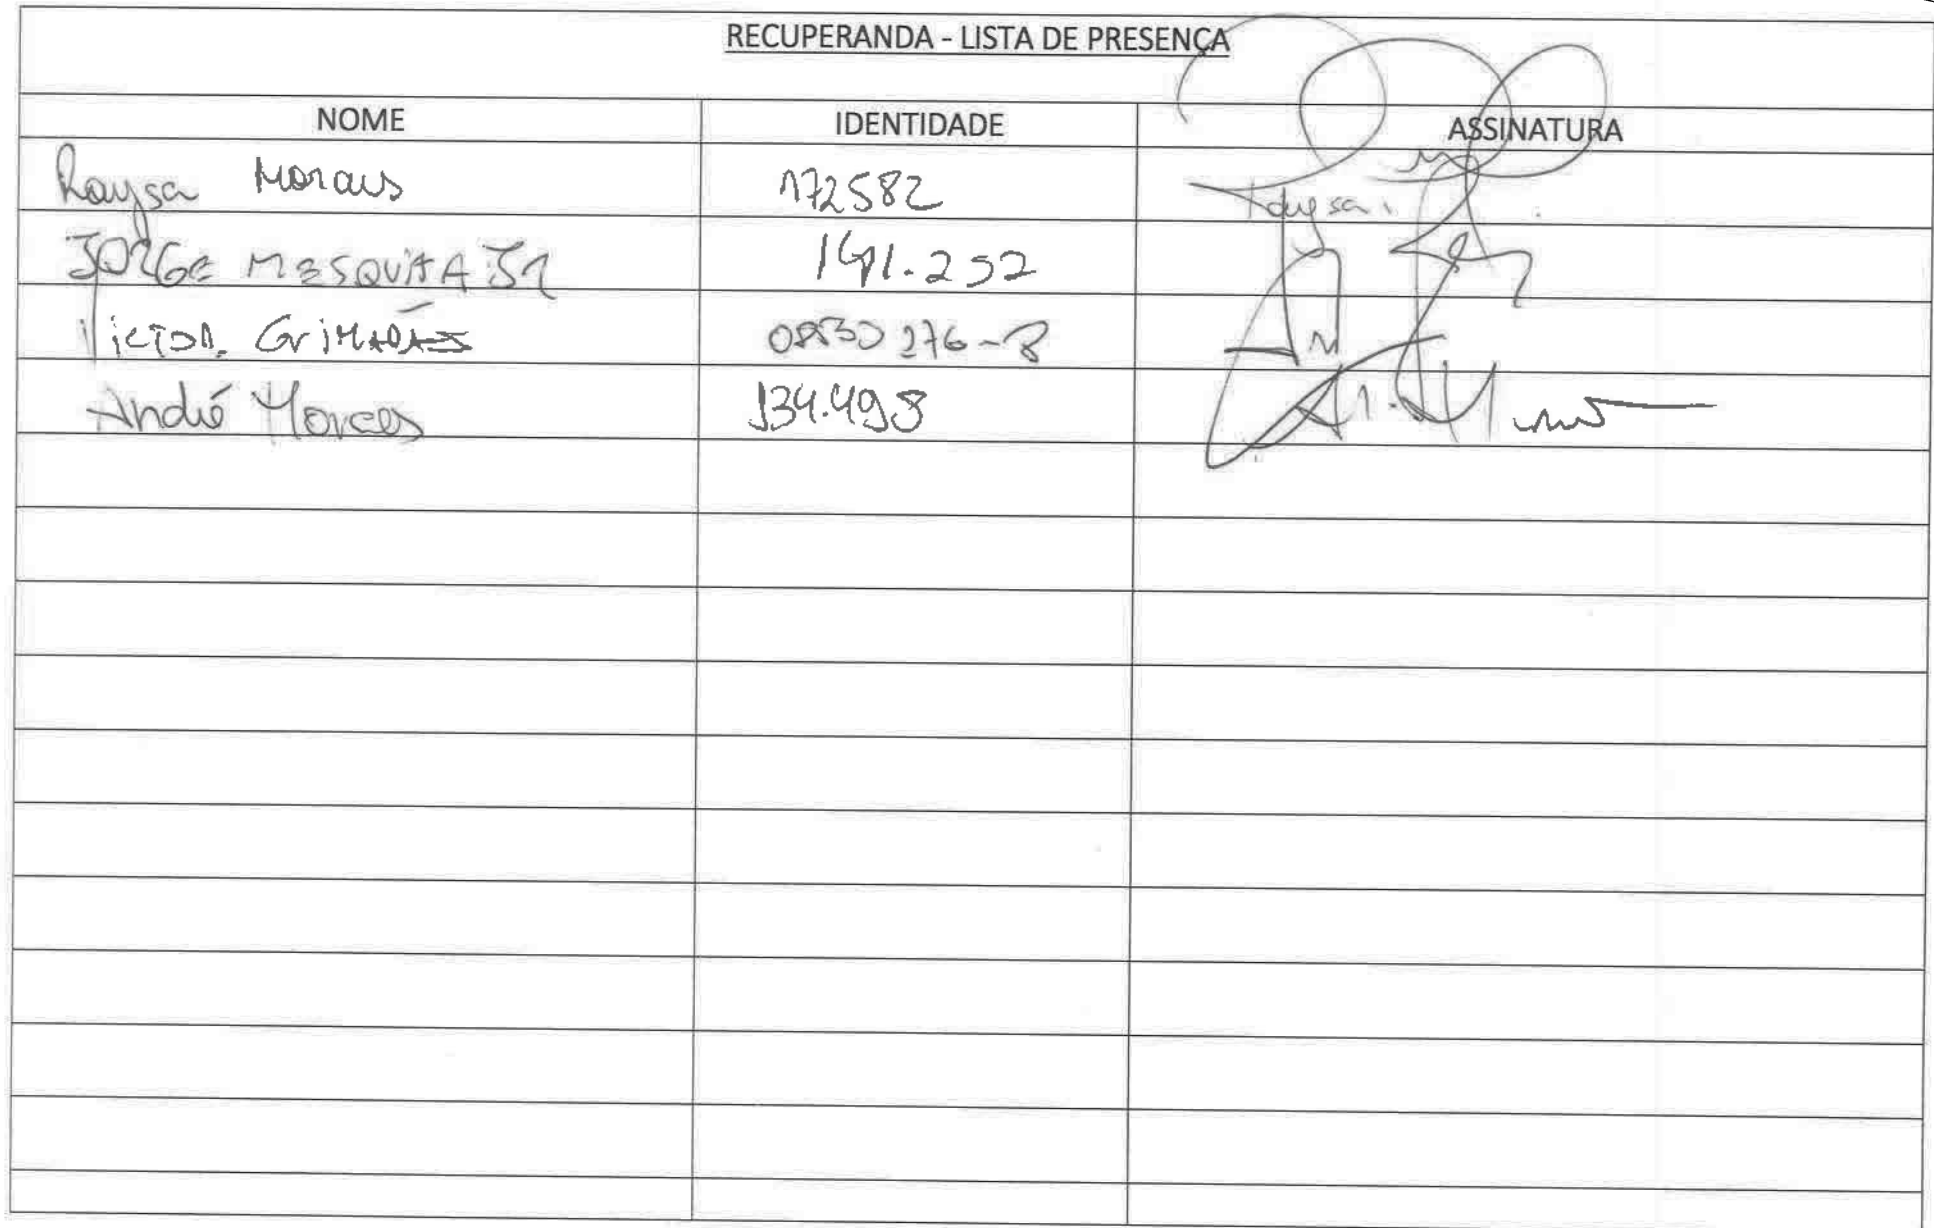 RECUPERANDA - LISTA DE PRESENÇA
NOME IDENTIDADE ASSINATURA
Raysa Morais 172582 Raysa
JORGE MESQUITA JR 141.252
VICTOR
André Moraes 134.498